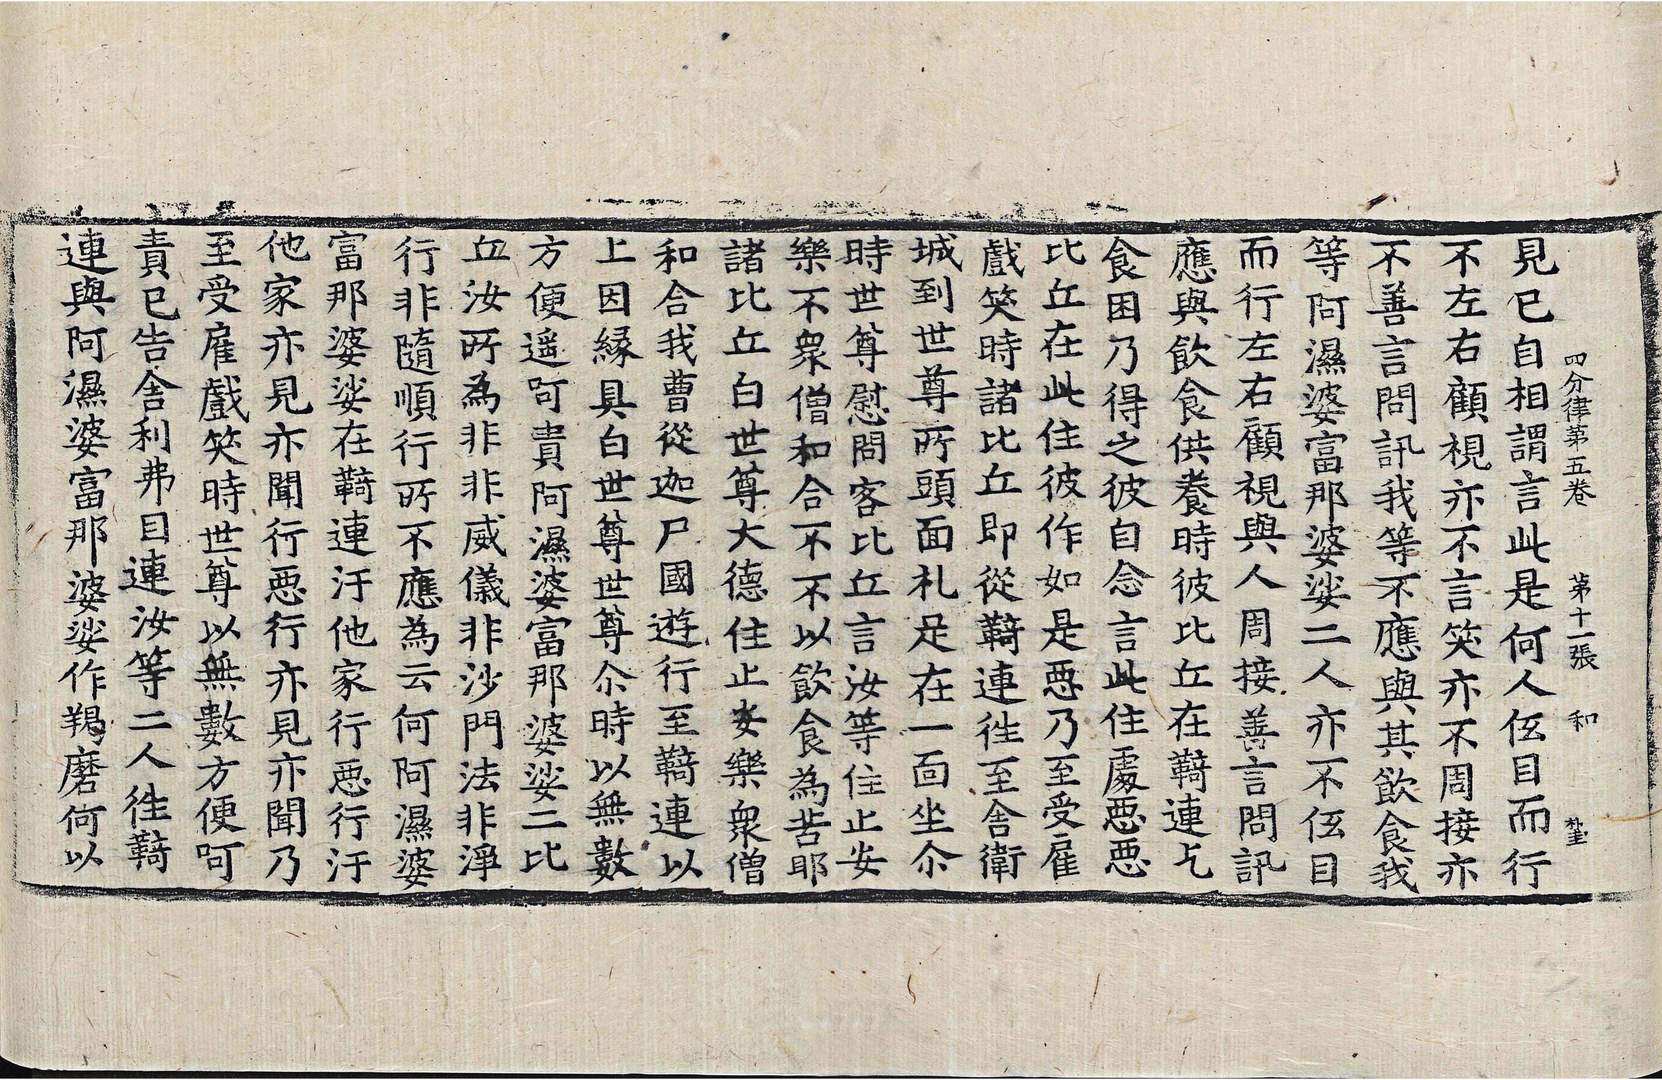 四分律第五卷 第十一張 和
見已自相謂言此是何人伭目而行
不左右顧視亦不言笑亦不周接亦
不善言問訊我等不應與其飲食我
等阿濕婆富那婆娑二人亦不伭目
而行左右顧視與人周接善言問訊
應與飲食供養時彼比丘在䩭連乞
食困乃得之彼自念言此住處惡惡
比丘在此住彼作如是惡乃至受雇
戲笑時諸比丘即從䩭連徃至舍衛
城到世尊所頭面礼足在一面坐尒
時世尊慰問客比丘言汝等住止安
樂不衆僧和合不不以飲食為苦耶
諸比丘白世尊大德住止安樂衆僧
和合我曹從迦尸國遊行至䩭連以
上因縁具白世尊世尊尒時以無數
方便遥呵責阿濕婆富那婆娑二比
丘汝所為非非威儀非沙門法非淨
行非隨順行所不應為云何阿濕婆
富那婆娑在䩭連汙他家行惡行汙
他家亦見亦聞行惡行亦見亦聞乃
至受雇戲笑時世尊以無數方便呵
責已告舍利弗目連汝等二人徃䩭
連與阿濕婆富那婆娑作羯磨何以